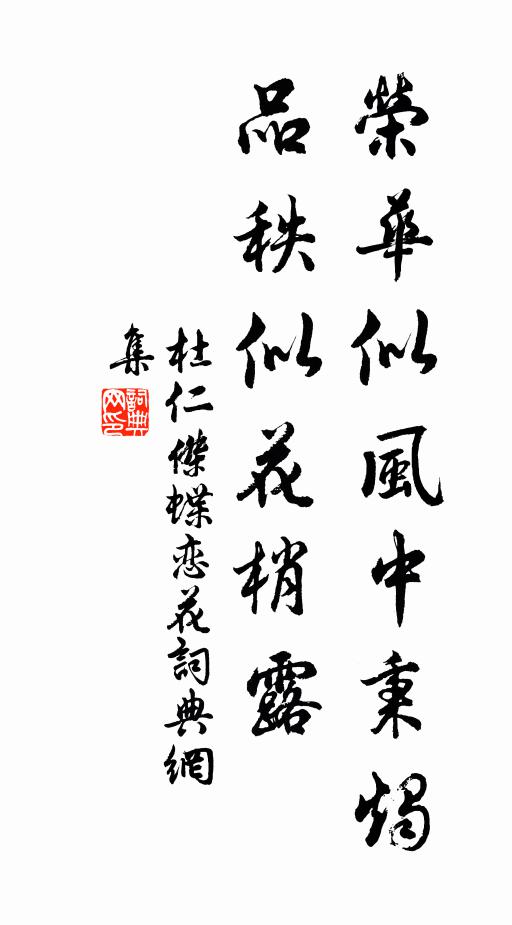 榮華似風中秉燭
品秩似花梢露
杜仁傑蝶恋花詞典網
集
詞典
网印